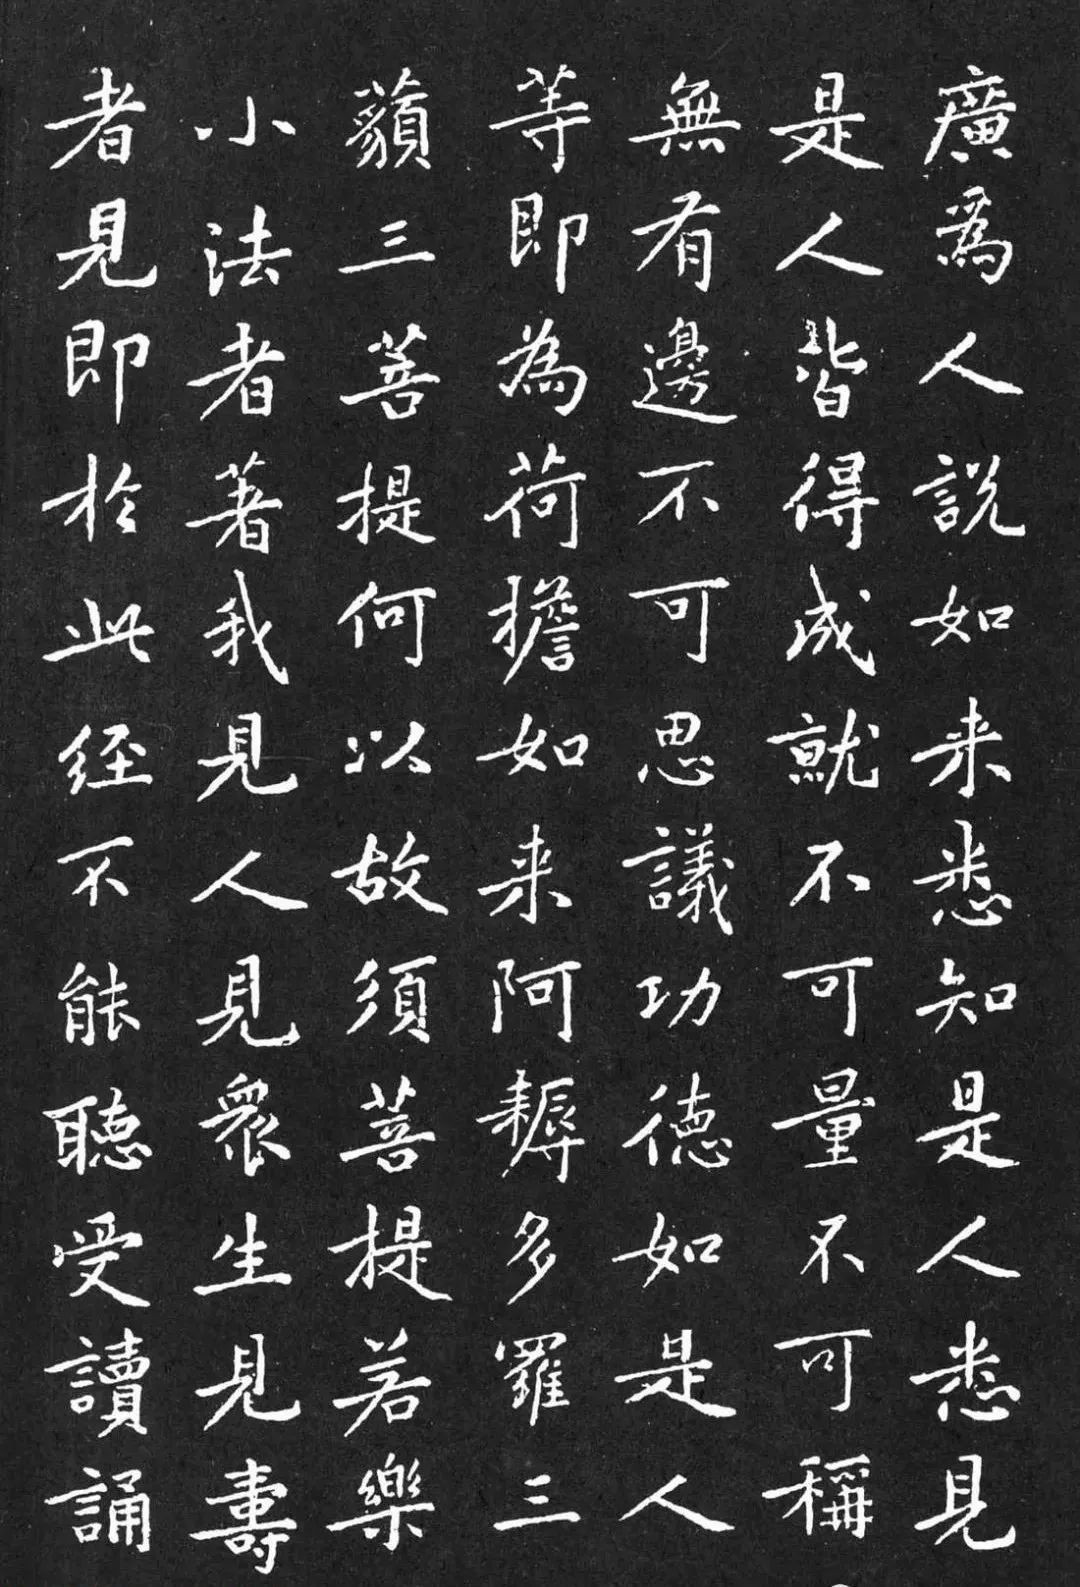 廣為人說如来悉知是人悉見
是人皆得成就不可量不可稱
無有邊不可思議功德如是人
等即為荷擔如来阿耨多羅三
藐三菩提何以故須菩提若樂
小法者著我見人見眾生見壽
者見即於此經不能聽受讀誦